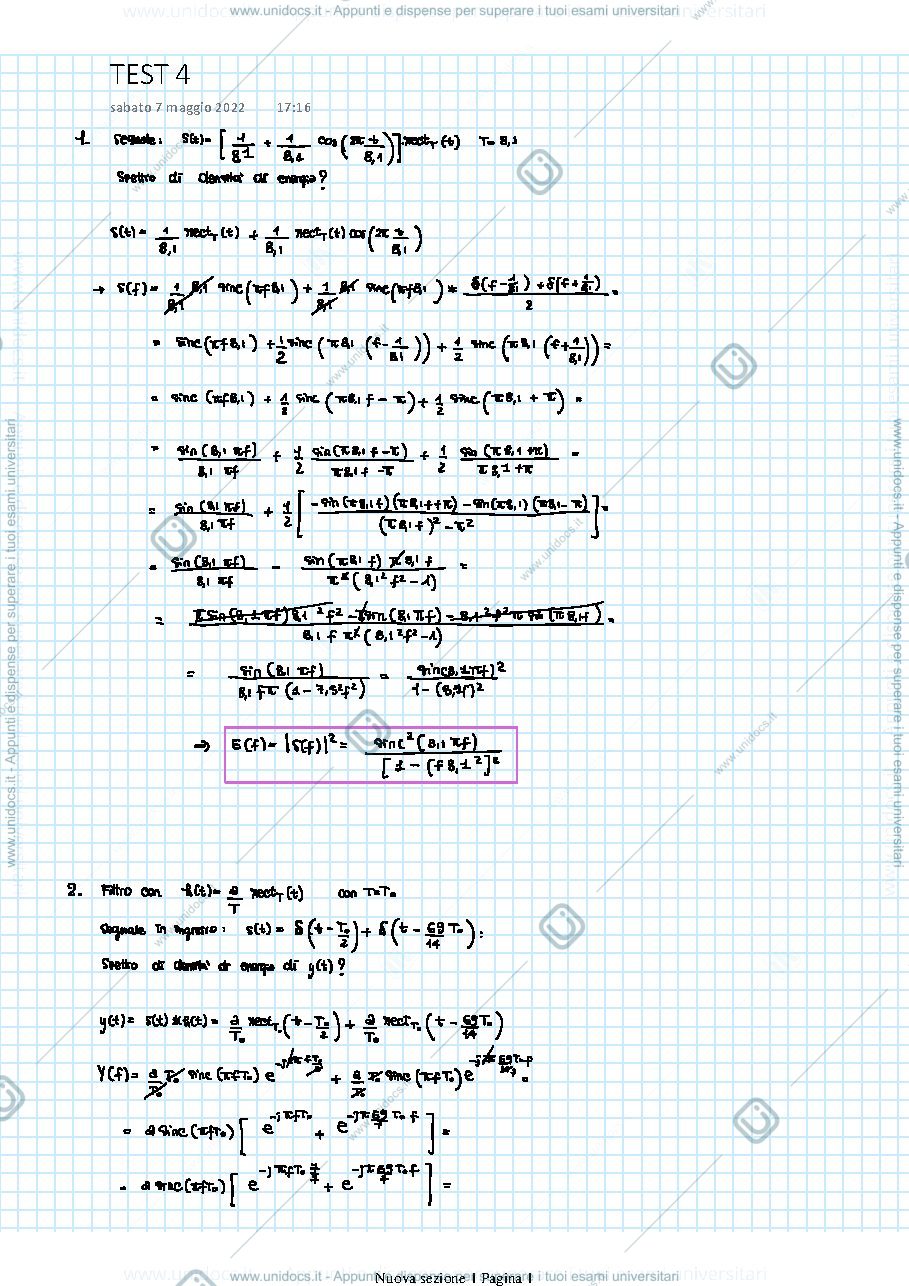 www.unidocs.it - Appunti e dispense per superare i tuoi esami universitari
TEST 4
sabato 7 maggio 2022 17:16
1. Segnale: s(t) = [1/8,1 + 1/8,1 cos(2π t/8,1)] rect_T(t) T = 8,1
Spettro di densita' di energia?
s(t) = 1/8,1 rect_T(t) + 1/8,1 rect_T(t) cos(2π t/8,1)
→ S(f) = 1/8,1 8,1 sinc(πf8,1) + 1/8,1 8,1 sinc(πf8,1) * δ(f - 1/8,1) + δ(f + 1/8,1) / 2 =
= sinc(πf8,1) + 1/2 sinc(π8,1 (f - 1/8,1)) + 1/2 sinc(π8,1 (f + 1/8,1)) =
= sinc(πf8,1) + 1/2 sinc(π8,1 f - π) + 1/2 sinc(π8,1 + π) =
= sin(8,1 πf) / 8,1 πf + 1/2 sin(π8,1 f - π) / π8,1 f - π + 1/2 sin(π8,1 + π) / π8,1 + π =
= sin(8,1 πf) / 8,1 πf + 1/2 [ -sin(π8,1 f)(π8,1 f + π) - sin(π8,1)(π8,1 - π) / (π8,1 f)² - π² ] =
= sin(8,1 πf) / 8,1 πf - sin(π8,1 f) π 8,1 f / π² (8,1² f² - 1) =
= / 8,1 f π² (8,1² f² - 1) =
= sin(8,1 πf) / 8,1 f π (1 - f²) = sinc(8,1 πf) / 1 - (8,1f)²
⇒ E(f) = |S(f)|² = sinc²(8,1 πf) / [1 - (f 8,1²]²
2. Filtro con h(t) = 2/T rect_T(t) con T = T₀
Segnale in ingresso: s(t) = δ(t - T₀/2) + δ(t - 69/14 T₀).
Spettro di densita' di energia di y(t)?
y(t) = s(t) * h(t) = 2/T₀ rect_T₀(t - T₀/2) + 2/T₀ rect_T₀(t - 69T₀/14)
Y(f) = 2/T₀ T₀ sinc(πfT₀) e^(-j2πfT₀/2) + 2/T₀ T₀ sinc(πfT₀) e^(-j2π 69T₀f/14) =
= 2 sinc(πfT₀) [ e^(-jπfT₀) + e^(-jπ 69/7 T₀ f) ] =
= 2 sinc(πfT₀) [ e^(-jπfT₀ 7/7) + e^(-jπ 69/7 T₀ f) ] =
www.unidocs.it - Appunti e dispense per superare i tuoi esami universitari
Nuova sezione 1 Pagina 1